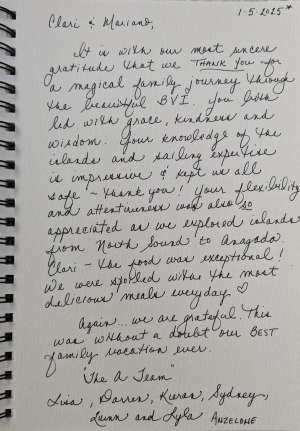 1-5-2025*
Clari & Mariano,
It is with our most sincere
gratitude that we THANK YOU for
a magical family journey through
the beautiful BVI. You both
led with grace, kindness and
wisdom. Your knowledge of the
islands and sailing expertise
is impressive & kept us all
safe ~ thank you! Your flexibility
and attentiveness was also so
appreciated as we explored islands
from North Sound to Anagada.
Clari - the food was exceptional!
We were spoiled with the most
delicious meals everyday ♡
Again... we are grateful. This
was without a doubt our BEST
family vacation ever.
"The A Team"
Lisa, Darren, Kieran, Sydney,
Quinn and Lyla ANZELONE